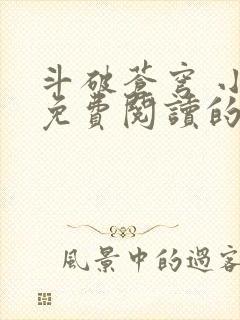 斗破蒼穹 小
免費閱讀的
風景中的過客